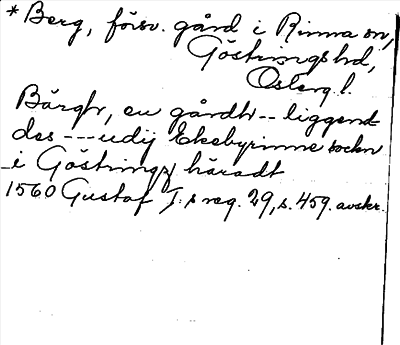 * Berg, försv. gård i Rinna sn,
Göstrings hd,
Östergl.
Bärgh, en gårdh -- liggend=
des --- udij Ekebyrinne sockn
i Göstrings häradt
1560 Gustaf I:s reg. 29, s. 459. avskr.